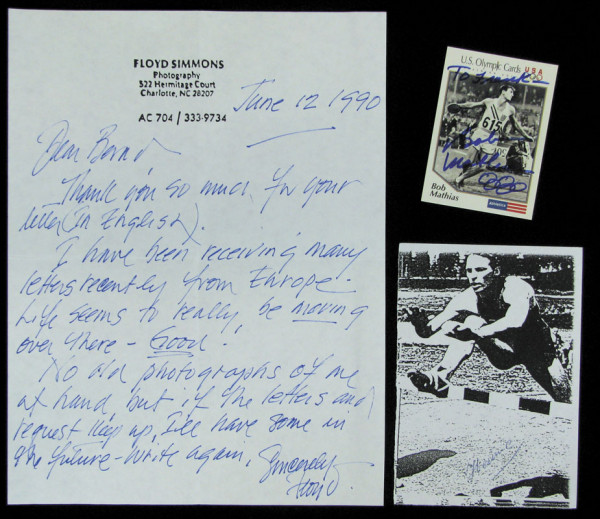 FLOYD SIMMONS
Photography
522 Hermitage Court
Charlotte, NC 28207
AC 704 / 333-9734
June 12 1990
Dear Bernd
Thank you so much for your
letter (In English).
I have been receiving many
letters recently from Europe.
Life seems to really be moving
over there - Good!
No old photographs of me
at hand, but if the letters and
request keep up, I'll have some in
the future - Write again,
Sincerely
Floyd
U.S. Olympic Cards USA
To Frank -
615
Bob
Mathias
Bob
Mathias